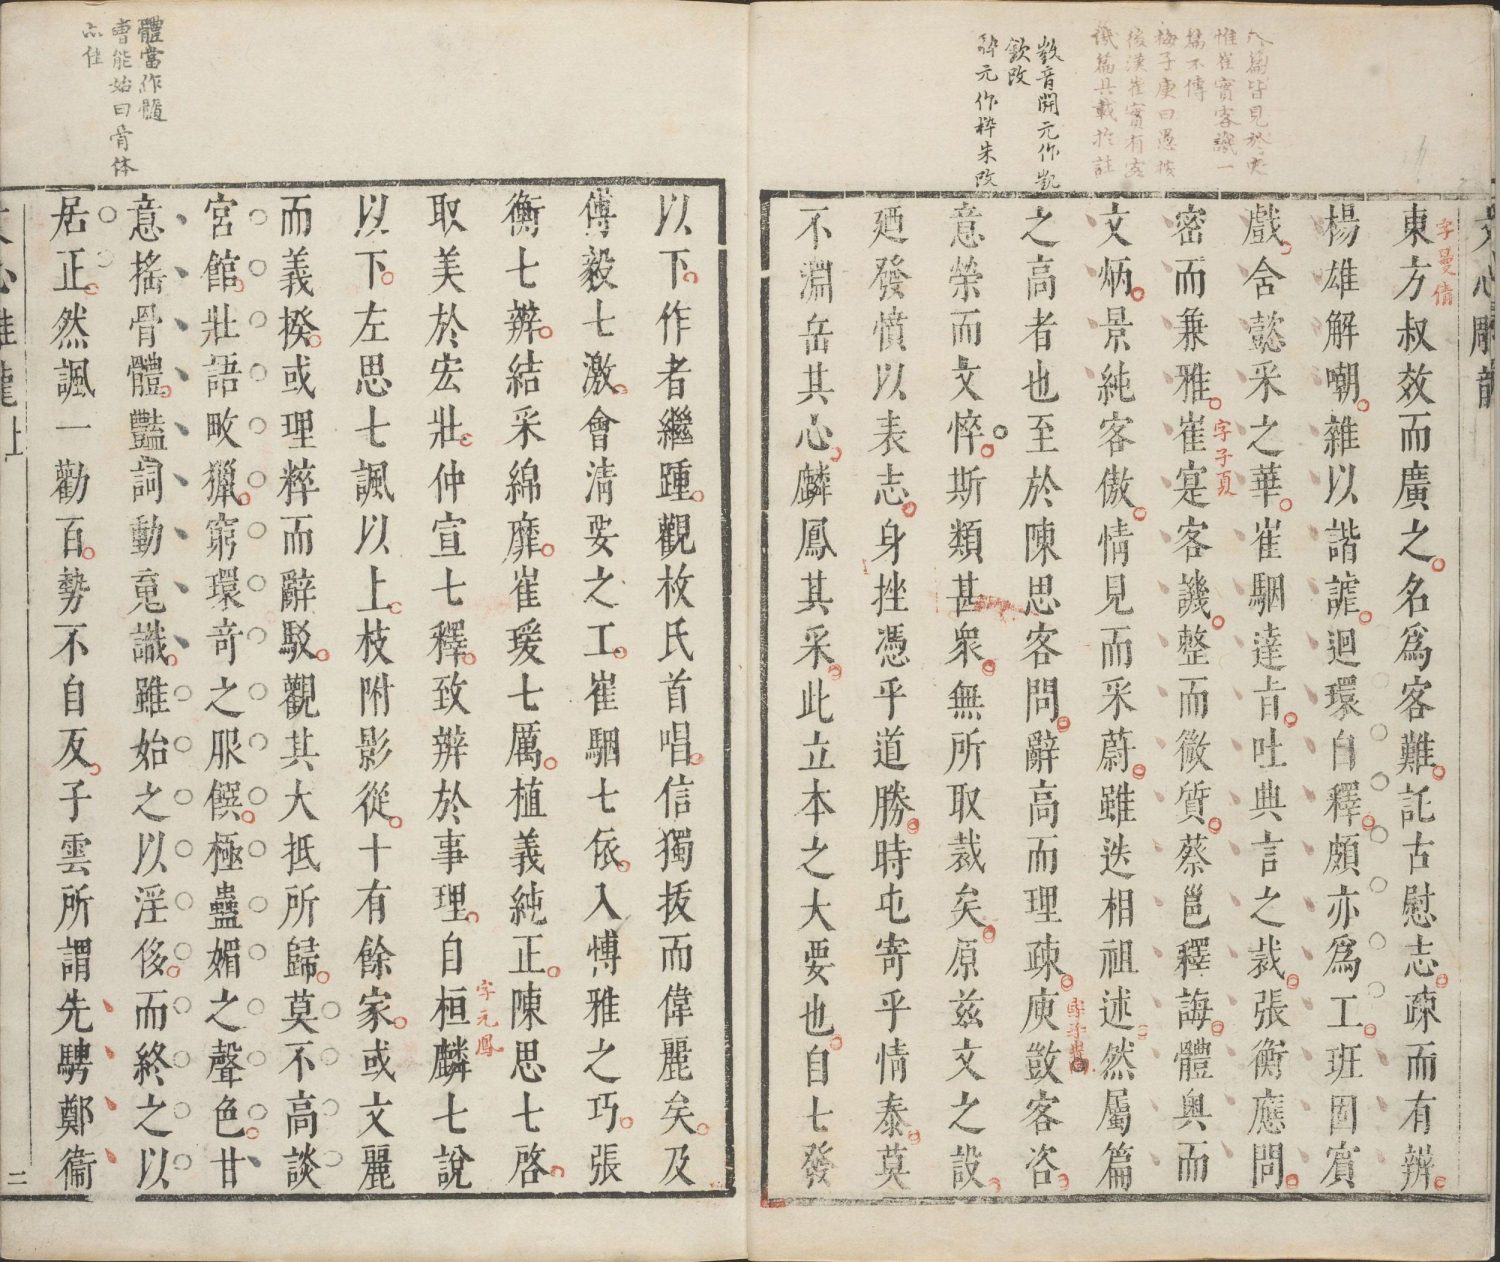 八篇皆見於史
惟崔寔客譏一
篇不傳
梅子庚曰愚按
後漢崔寔有客
譏篇具載於註
敳音開元作凱
欽改
碎元作粹朱改
文心雕龍
字曼倩
東方叔效而廣之名為客難託古慰志疎而有辨
楊雄解嘲雜以諧謔迴環自釋頗亦為工班固賓
戲含懿采之華崔駰達旨吐典言之裁張衡應問
字子真
密而兼雅崔寔客譏整而微質蔡邕釋誨體奧而
文炳景純客傲情見而采蔚雖迭相祖述然屬篇
之高者也至於陳思客問辭高而理疎庾敳客咨
意榮而文悴斯類甚衆無所取裁矣原茲文之設
廼發憤以表志身挫憑乎道勝時屯寄乎情泰莫
不淵岳其心麟鳳其采此立本之大要也自七發
體當作髓
曹能始曰骨体
亦佳
以下作者繼踵觀枚氏首唱信獨拔而偉麗矣及
傅毅七激會清要之工崔駰七依入愽雅之巧張
衡七辨結采綿靡崔瑗七厲植義純正陳思七啓
字元鳳
取美於宏壯仲宣七釋致辨於事理自桓麟七說
以下左思七諷以上枝附影從十有餘家或文麗
而義揆或理粹而辭駁觀其大抵所歸莫不高談
宮館壯語畋獵窮環竒之服饌極蠱媚之聲色甘
意搖骨體豔詞動䰟識雖始之以淫侈而終之以
居正然諷一勸百勢不自反子雲所謂先騁鄭衞
二